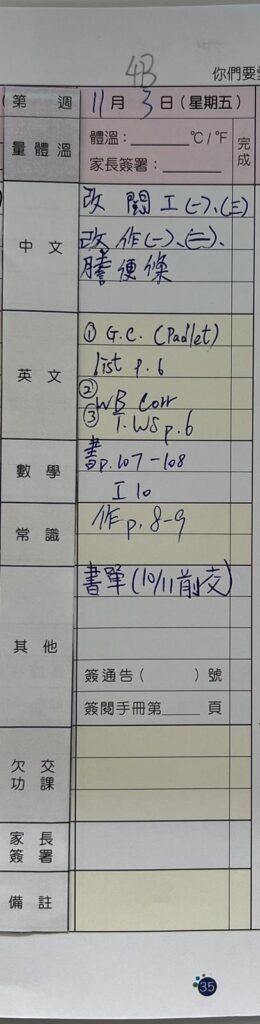 4B
你們要
第 週 11月 3日(星期五)
量體溫 體溫：______°C/°F 完成
家長簽署：______
中文 改 閱工(一)、(三)
改作(一)、(二)、
謄便條
英文 ① G.C. (Padlet)
list p.6
② WB Corr
③ T. WS p.6
數學 書p.107-108
工10
常識 作p.8-9
其他 書單(10/11前交)
簽通告( )號
簽閱手冊第____頁
欠交功課
家長簽署
備註
35